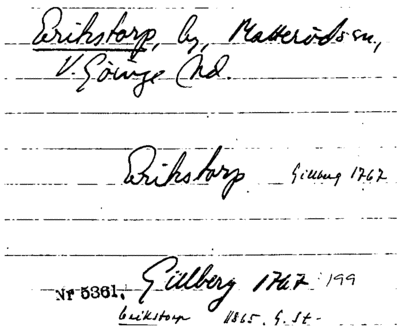 Erikstorp, by, Matteröds sn.,
V. Göinge hd.
Erikstorp Gillberg 1767
Nr 5361. Gillberg 1767 : 199
Erikstorp 1865. G. St.